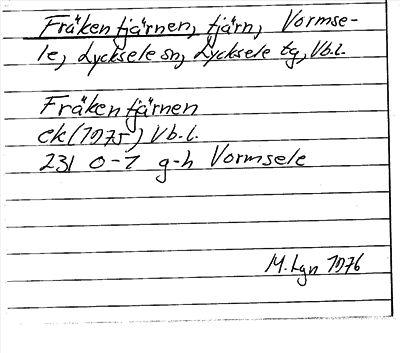 Fräkentjärnen, tjärn, Vormse-
le, Lycksele sn, Lycksele tg, Vb.l.
Fräkentjärnen
ek (1975) Vb.l.
231 0-1 g-h Vormsele
M. Lgn 1976